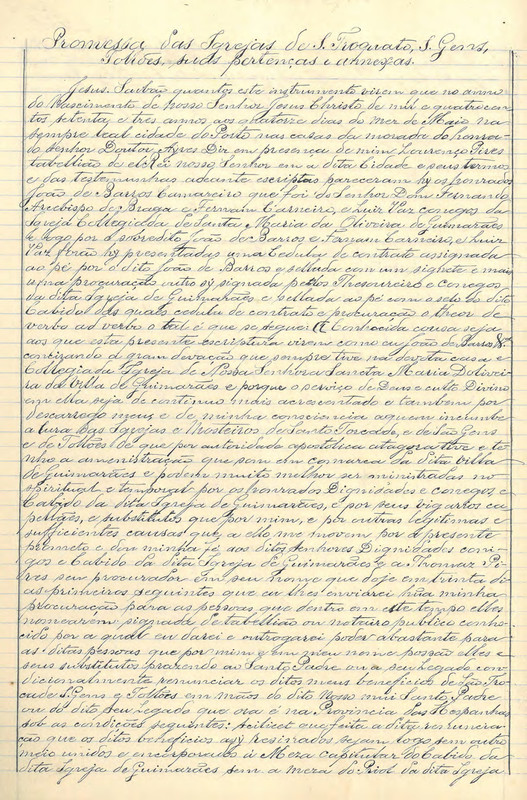 Promessa das Igrejas de S. Troquato, S. Gens,
Toloẽs, suas pertenças e annexas.
Jesus. Saibão quantos este instrumento virem que no anno
do Nascimento de Nosso Senhor Jesus Christo de mil e quatro cen
tos setenta, e tres annos aos quatorze dias do mez de Maio na
sempre leal cidade do Porto nas casas da morada do honra-
do Senhor Doutor Ayres Dir em presença de mim Lourenço Pires
tabellião de elRei nosso Senhor em a dita Cidade e seus termos
e das testemunhas adeante escriptas pareceram hy os honrados
João de Barros Camareiro que foi do Senhor Dom Fernando
Arcebispo de Braga e Fernam Carneiro, e Luiz Vaz conegos da
Igreja Collegiada de Santa Maria da Oliveira de Guimarães
e logo por o sobredito João de Barros e Fernam Carneiro, e Luiz
Vaz forão hy presentadas uma Cedula de contrato assignada
ao pé por o dito João de Barros e sellada com um signete e mais
uma procuração outro sy signada pello Thesoureiro e conegos
da dita Igreja de Guimarães e sellada ao pé com o sello do dito
Cabido das quaes cedula de contrato e procuração o theor de
verbo ad verbo o tal é que se segue: Conhecida cousa seja
aos que esta presente escriptura virem como eu João de Barros
contirando a gram devação que sempre tive na devota casa e
Collegiada Igreja de Nossa Senhora Sancta Maria Doliveir
ra da Villa de Guimarães e porque o serviço de Deus e culto Divino
em ella seja de continuo mais acrescentado e tambem por
descarrego meus e de minha consciencia aquem incumbe
a cura das Igrejas e Mosteiros de Santo Torcade, e de São Gens
e de Toloẽs de que por autoridade apostolica atagora tive e te-
nho a amenistração que som em comarca da dita villa
de Guimarães e podem muito melhor ser ministradas no
spiritual e temporal por os honrados Dignidades e conegos e
Cabido da dita Igreja de Guimarães, e por seus vigarios ca
pellães, e substitutos que por mim, e por outras legitimas e
sufficientes causas que a ello me movem por o presente
prometo e dou minha fé aos ditos senhores Dignidades cone-
gos e Cabido da dita Igreja de Guimarães e a Thomaz Pi
res seu procurador em seu nome que doje em trinta di
as primeiros seguintes que eu lhes enviarei hũa minha
procuração para as persoas que dentro em este tempo elles
nomearem signada de tabellião ou notairo publico conhe-
cido por a qual eu darei e outrogarei poder abastante para
as ditas pessoas que por mim e em meu nome possão elles e
seus substitutos prazendo ao Santo Padre ou a seu Legado con
dicionalmente renunciar os ditos meus beneficios de São Tro
cade S. Gens e Toloẽs em mãos do dito Nosso mui Santo Padre
ou do dito seu Legado que ora é na Provincia das Hespanhas
sob as condições seguintes: scilicet que feita a dita renuncia-
ção que os ditos beneficios assy resinados sejam logo sem outro
meio unidos e encorporados á Meza capitular do Cabido da
dita Igreja de Guimarães sem a meza do Priol da dita Igreja